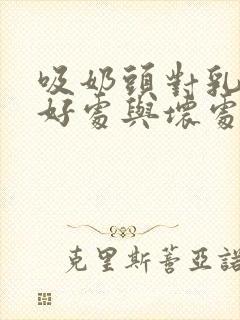 吸奶頭對乳
好處與壞處
克里斯蒂亞諾